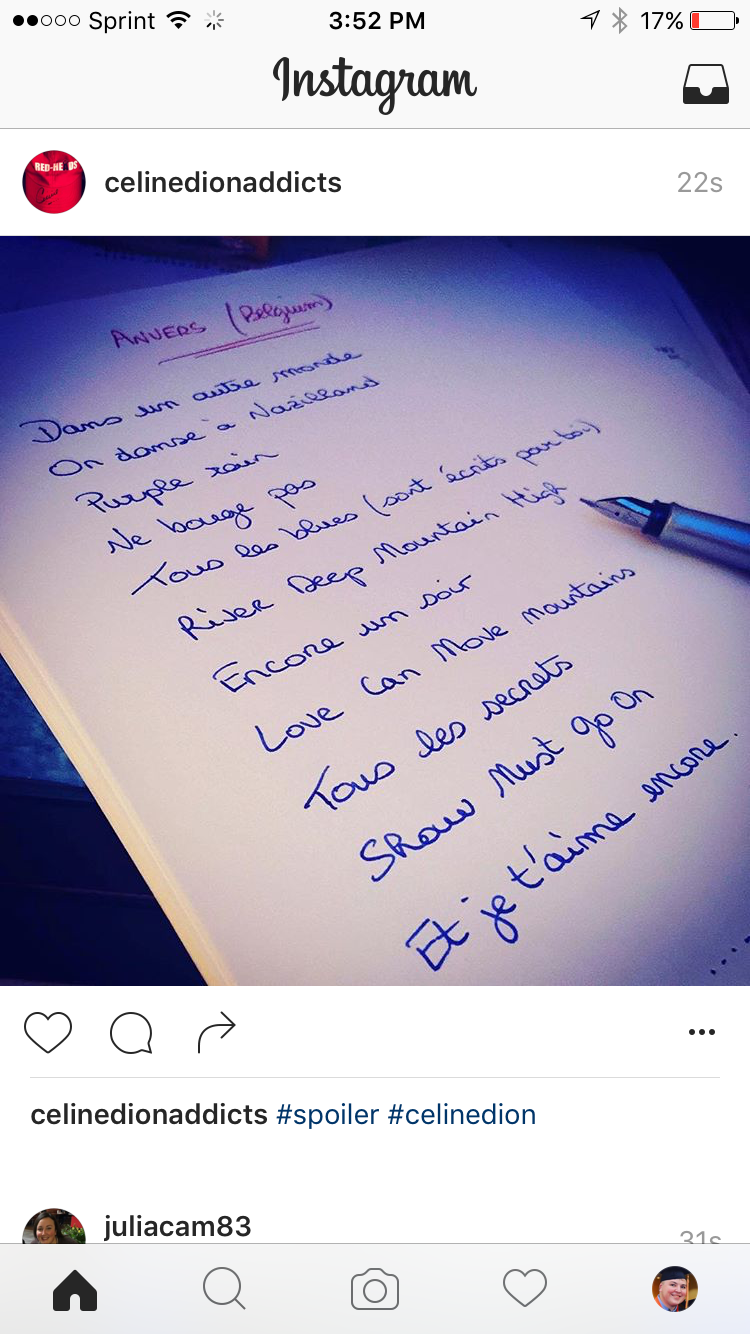 Sprint 3:52 PM 17%
Instagram
RED-HEADS
celinedionaddicts 22s
ANVERS (Belgium)
Dans un autre monde
On danse à Naziland
Purple rain
Ne bouge pas
Tous les blues (sont écrits pour toi)
River Deep Mountain High
Encore un soir
Love Can Move Mountains
Tous les secrets
Show Must go On
Et je t'aime encore.
....
celinedionaddicts #spoiler #celinedion
juliacam83 31s